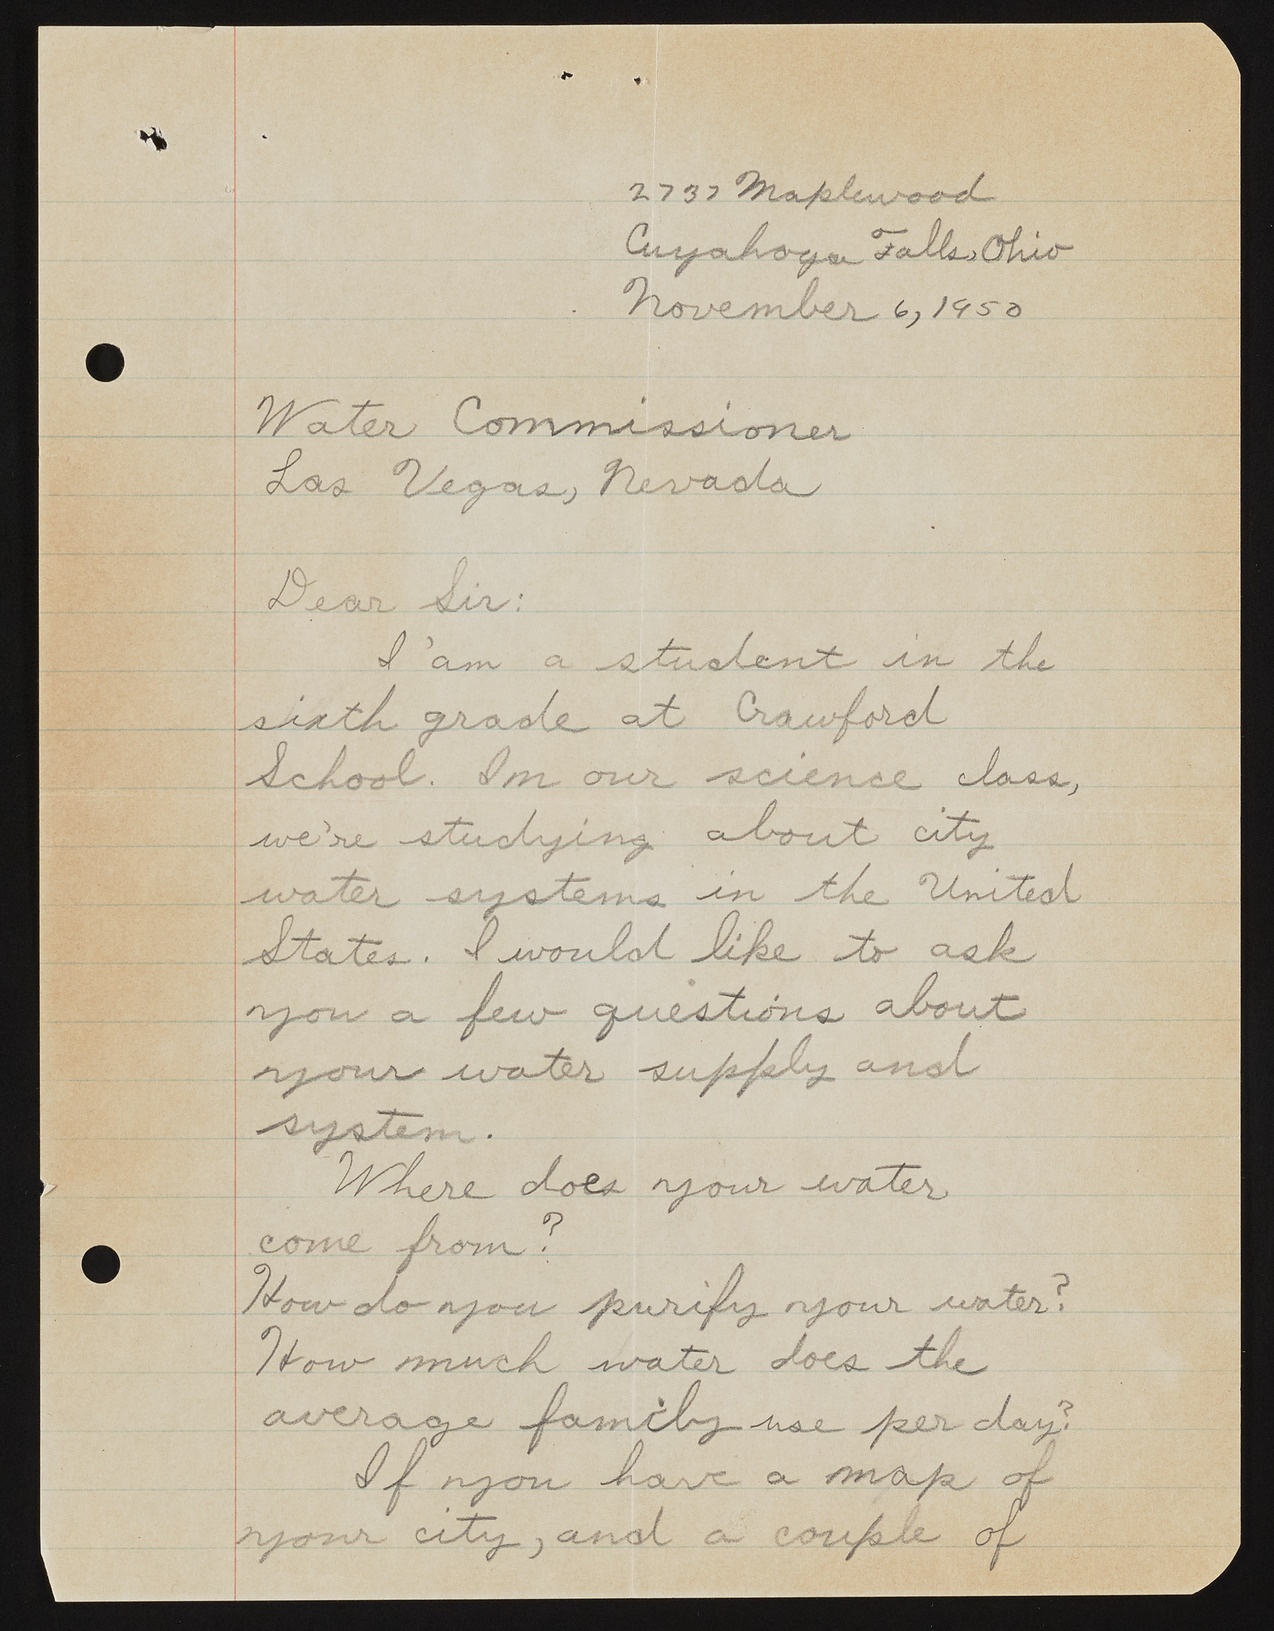 2737 Maplewood
Cuyahoga Falls, Ohio
November 6, 1950
Water Commissioner
Las Vegas, Nevada
Dear Sir:
I'am a student in the
sixth grade at Crawford
School. In our science class,
we're studying about city
water systems in the United
States. I would like to ask
you a few questions about
your water supply and
system.
Where does your water
come from?
How do you purify your water?
How much water does the
average family use per day?
If you have a map of
your city, and a couple of